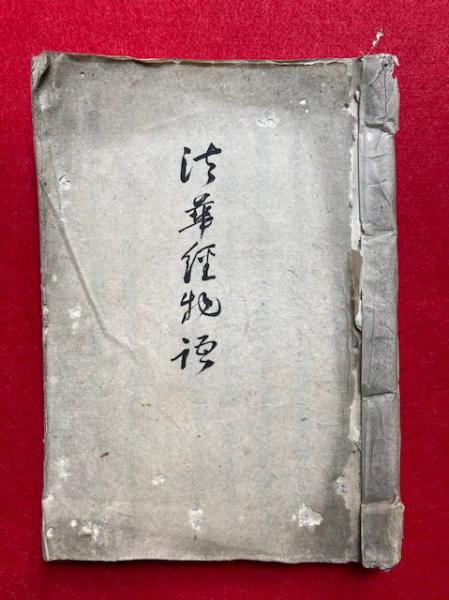 法華經物語